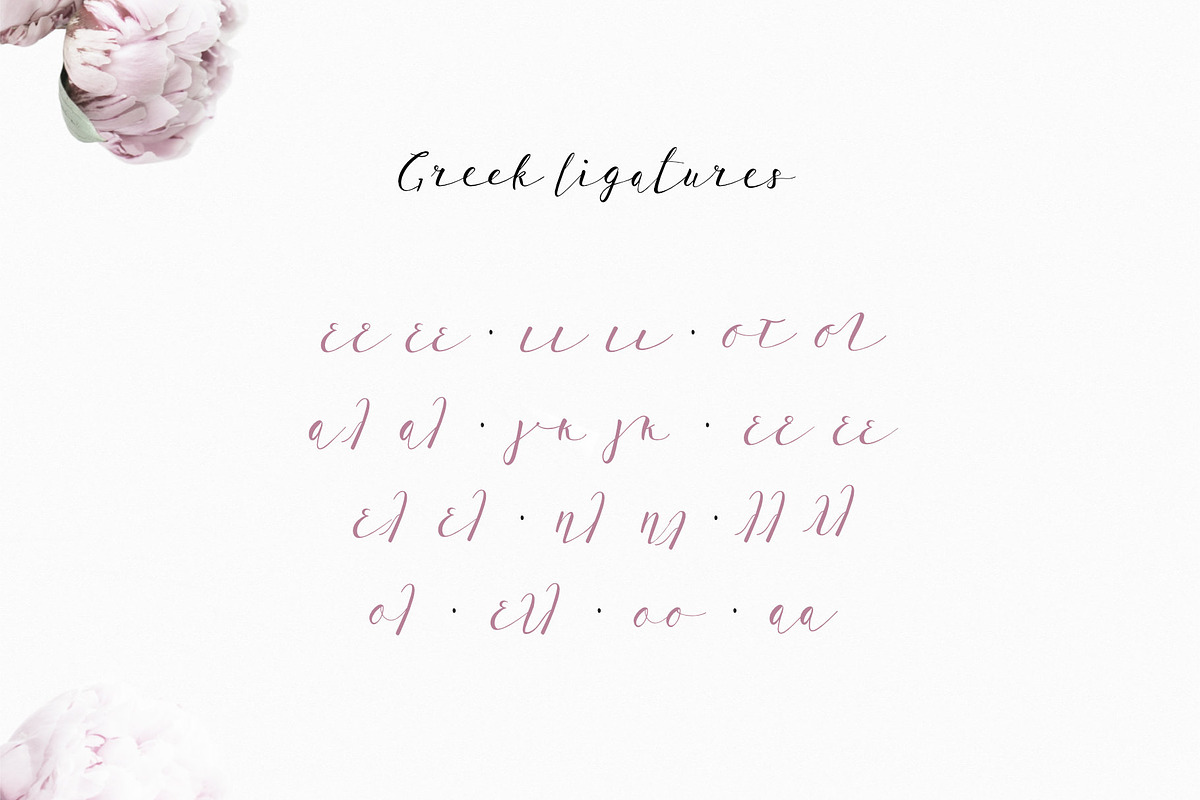 Greek ligatures
εε εε · ιι ιι · στ στ
αλ αλ · γκ γκ · εε εε
ελ ελ · ηλ ηλ · λλ λλ
ολ · ελλ · οο · αα